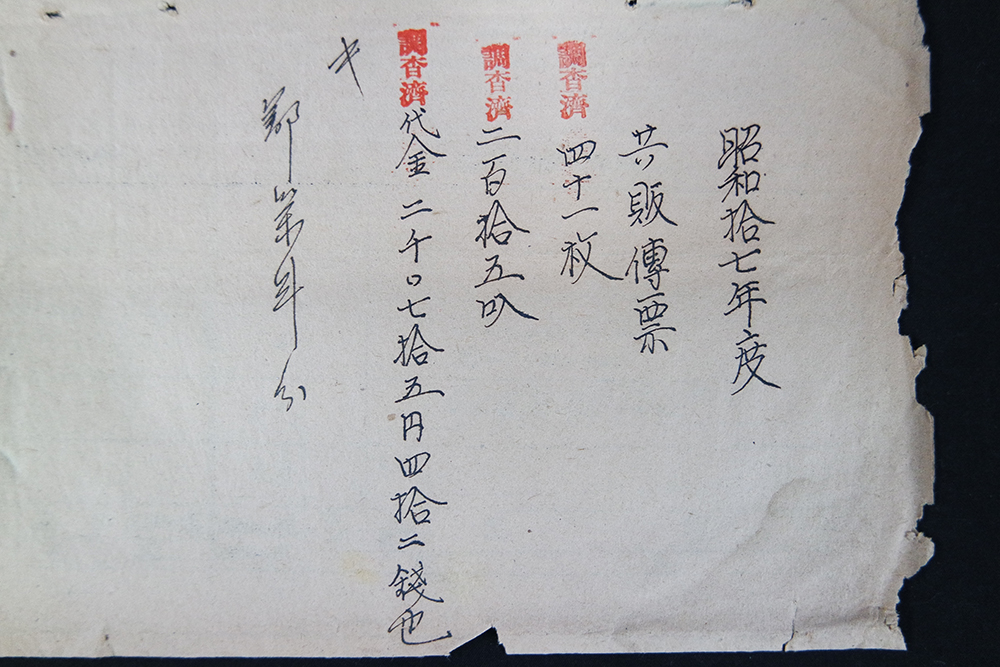 昭和拾七年度
共販傳票
調査濟
四十一枚
調査濟
二百拾五叺
調査濟
代金 二千〇七拾五円四拾二錢也
鄭
分